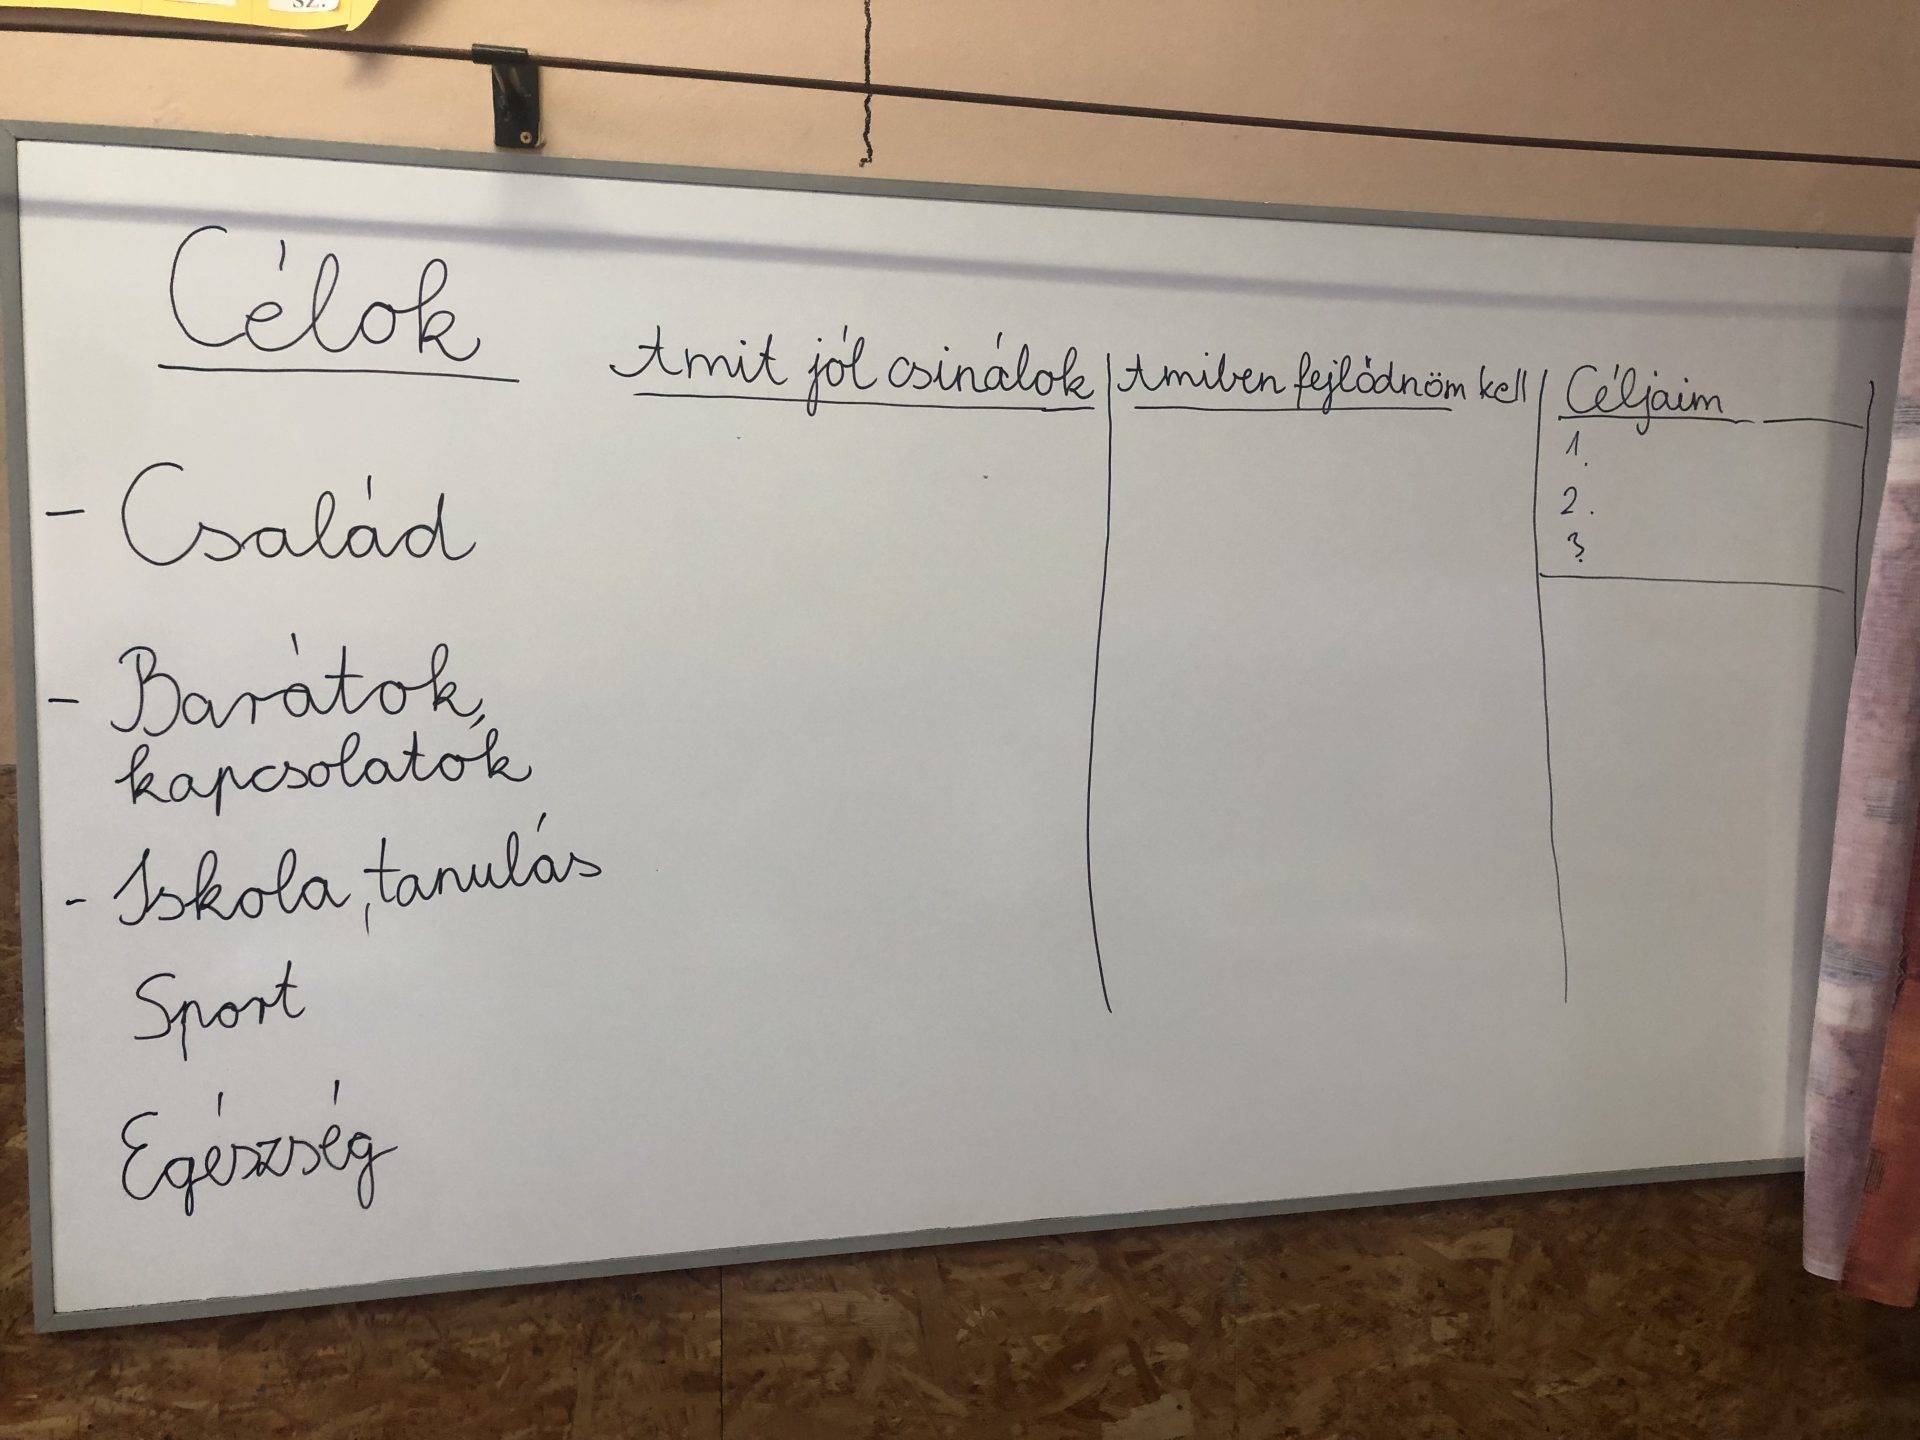 sz.
Célok
Amit jól csinálok
Amiben fejlődnöm kell
Céljaim
1.
2.
3.
- Család
- Barátok,
kapcsolatok
- Iskola, tanulás
Sport
Egészség